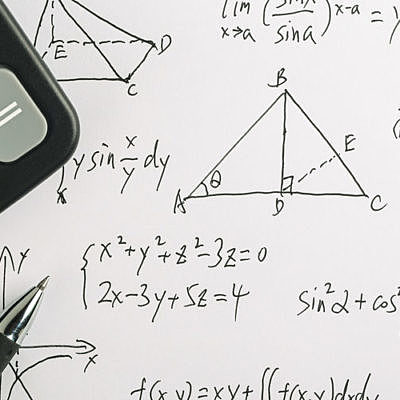 E D
C
lim (sinx/sina)^x-a =
x→a
B
E
θ
A D C
y sin x/y dy
x²+y²+z²-3z=0
2x-3y+5z=4
sin²α+cos²
y
x
f(x,y)=xy+∬f(x,y)dxdy